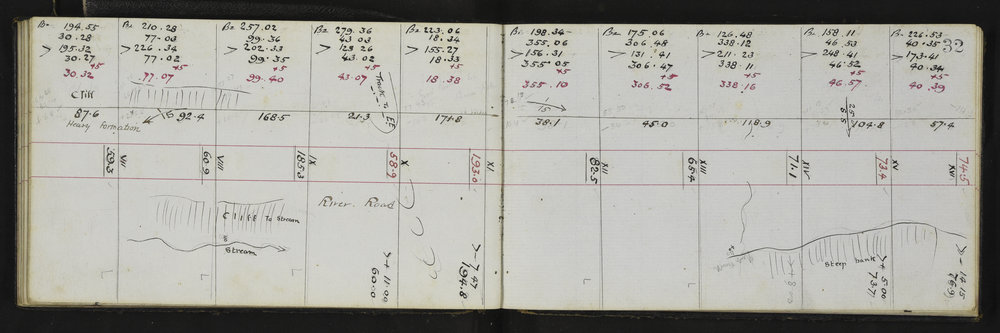 Bc 194.55
30.28
> 195.32
30.27
+5
30.32
Cliff
87.6
Heavy Formation
59.3
Bc 210.28
77.03
> 226.34
77.02
+5
77.07
16
92.4
VII
60.9
Cliff To Stream
Stream
Bc 257.02
99.36
> 202.33
99.35
+5
99.40
168.5
VIII
185.3
Bc 279.36
43.03
> 129.26
43.02
+5
43.07
Track To
EE
21.3
IX
58.9
River Road
> + 11.00
60.0
Bc 223.06
18.34
> 155.27
18.33
+5
18.38
171.8
X
193.0
XI
> - 7.47
194.8
Bc 198.34
355.06
> 156.31
355.05
+5
355.10
1
15
38.1
82.5
Bc 175.06
306.48
> 131.41
306.47
+5
306.52
45.0
XII
65.4
Bc 126.48
338.12
> 211.23
338.11
+5
338.16
118.9
XIII
71.1
Bc 158.11
46.53
> 248.41
46.52
+5
46.57
104.8
XIV
73.4
Steep bank
> + 5.00
73.7
Bc 226.53
40.35
> 173.41
40.34
+5
40.39
32
57.4
XV
74.5
XVI
> - 14.15
76.9